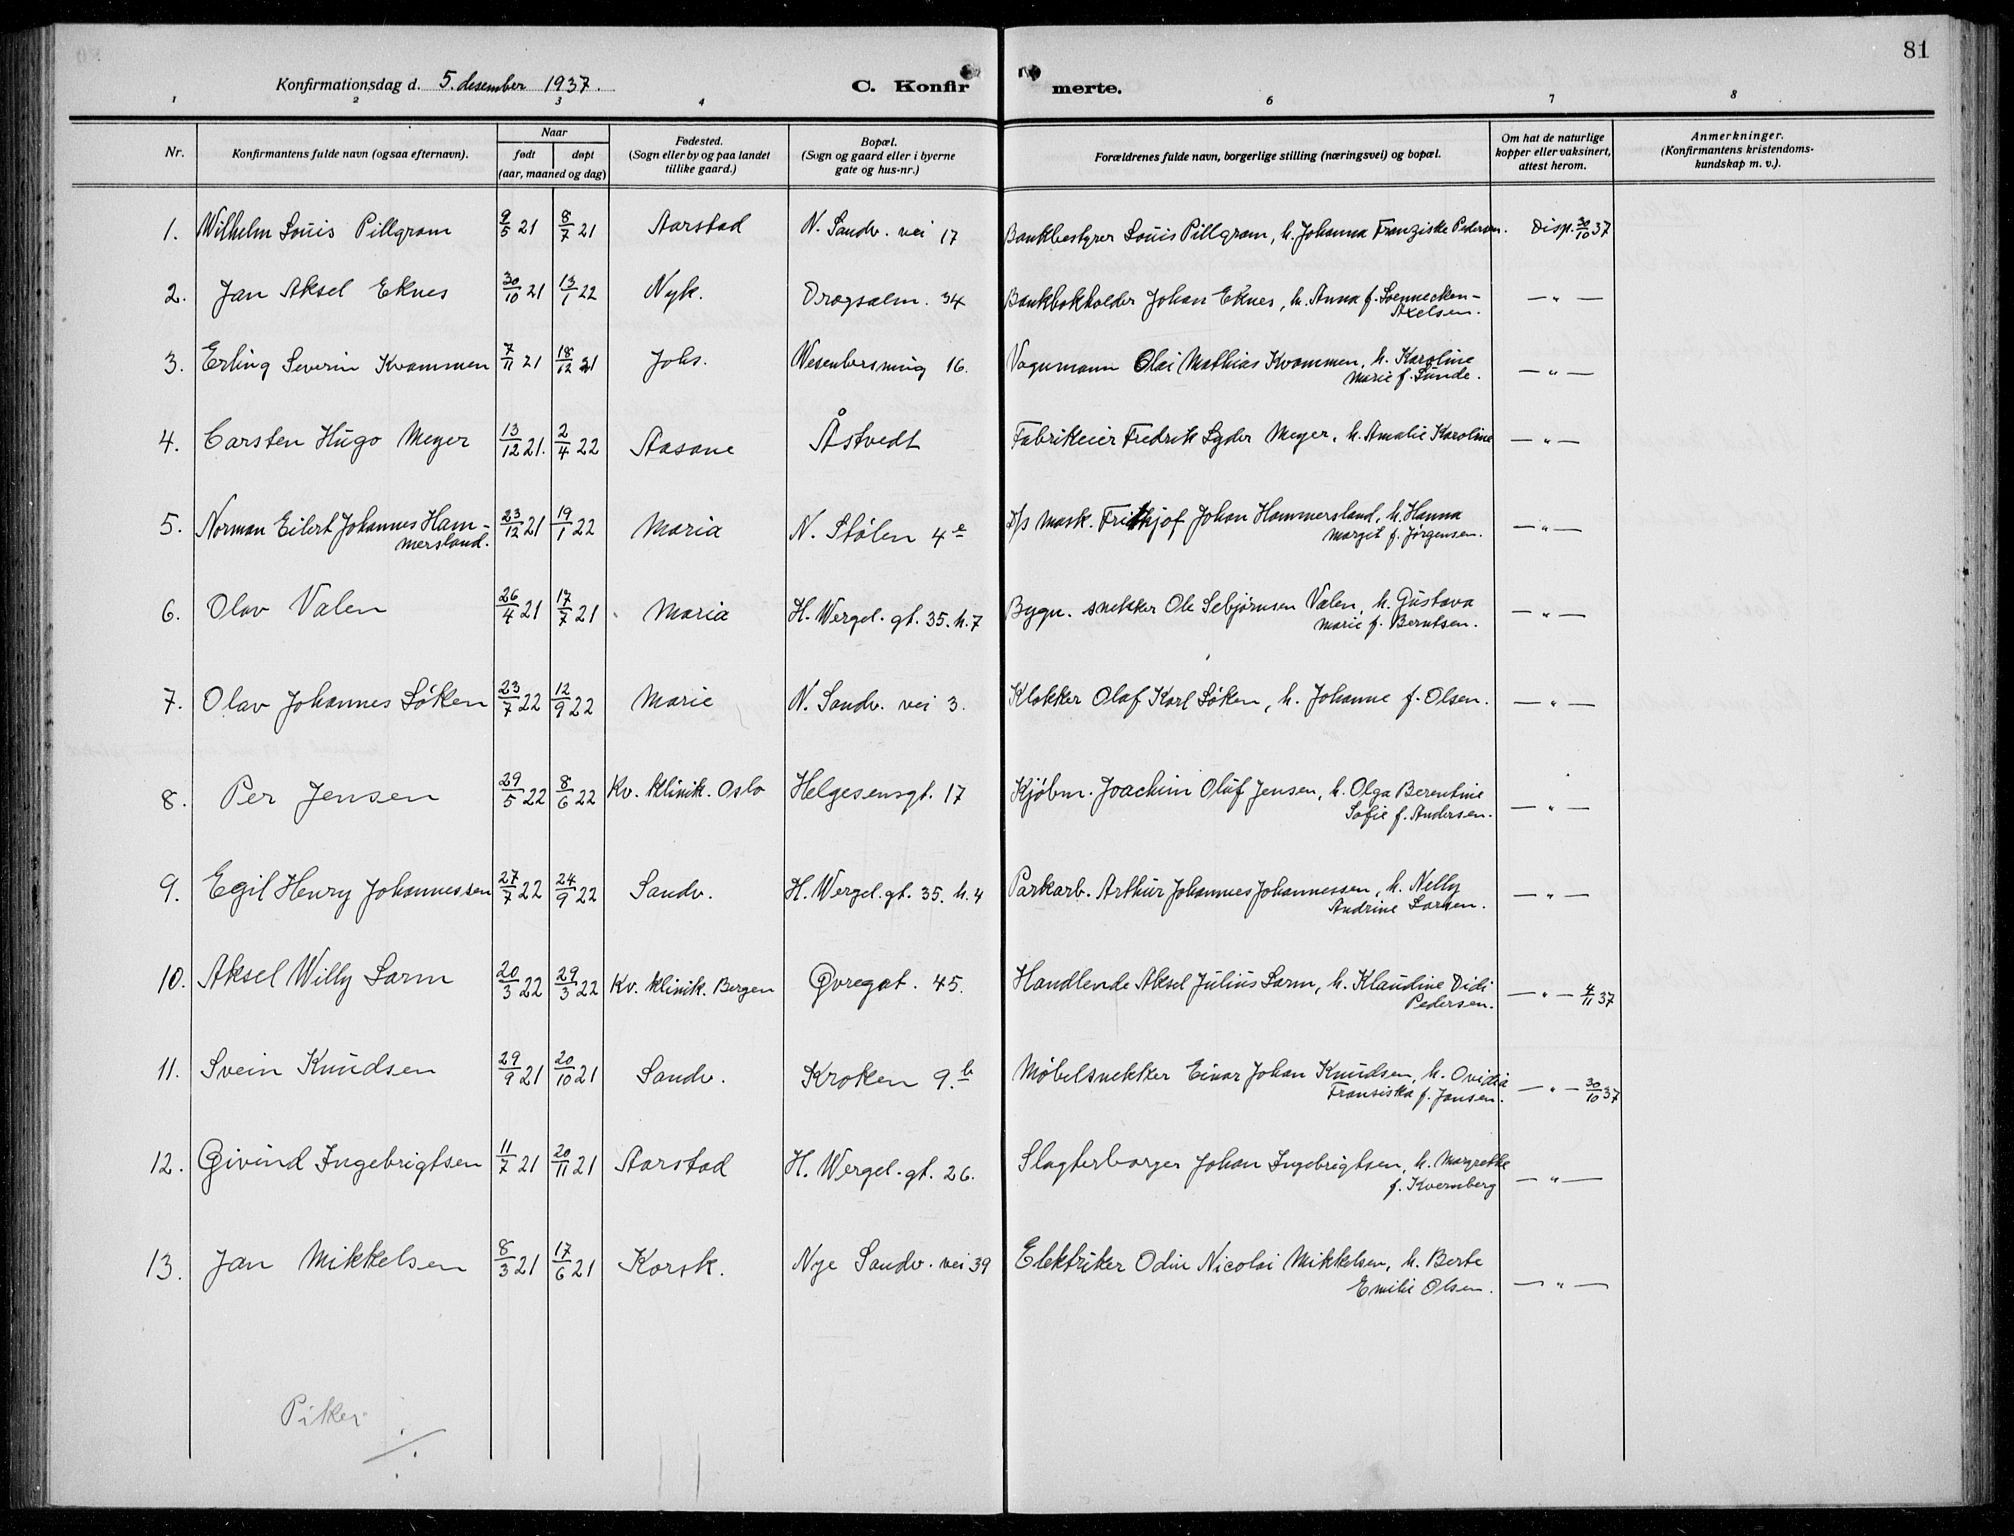 81
Konfirmationsdag d. 5. desember 1937. C. Konfir merte.
1 2 3 4 6 7 8
Nr. Konfirmantens fulde navn (ogsaa efternavn). Naar født døpt (aar, maaned og dag) Fødested. (Sogn eller by og paa landet tillike gaard.) Bopæl. (Sogn og gaard eller i byerne gate og hus-nr.) Forældrenes fulde navn, borgerlige stilling (næringsvei) og bopæl. Om hat de naturlige kopper eller vaksinert, attest herom. Anmerkninger. (Konfirmantens kristendoms-kundskap m. v.).
1. Wilhelm Louis Pillgram 9/5 21 8/7 21 Aarstad N. Sandv. vei 17 Bankbestyrer Louis Pillgram, h. Johanna Franziske Pedersen. Disp. 30/10 37
2. Jan Aksel Eknes 30/10 21 13/1 22 Nyk. Dragsalm. 34 Bankbokholder Johan Eknes, h. Anna f. Soennecken-
Axelsen. — " —
3. Erling Severin Kvammen 7/11 21 18/12 21 Johs. Wesenbersmug 16. Vognmann Olai Mathias Kvammen, h. Karoline
Marie f. Sunde. — " —
4. Carsten Hugo Meyer 13/12 21. 2/4 22 Aasane Åstvedt Fabrikeier Fredrik Lyder Meyer, h. Amalie Karoline — " —
5. Norman Eilert Johannes Ham-
mersland. 23/12 21 19/1 22 Maria N. Stølen 4 e I/s mask. Frithjof Johan Hammersland, h. Hanna
Margit f. Jørgensen. — " —
6. Olav Valen 26/4 21 17/7 21 Maria H. Wergel. gt. 35. h. 7 Bygn. snekker Ole Sebjørnsen Valen, h. Gustava
Marie f. Berntsen. — " —
7. Olav Johannes Søken 23/7 22 12/9 22 Marie N. Sandv. vei 3. Klokker Olaf Karl Søken, h. Johanne f. Olsen. — " —
8. Per Jensen 29/5 22 8/6 22 Kv. klinik. Oslo Helgesensgt. 17 Kjøbm. Joachim Oluf Jensen, h. Olga Berentine
Sofie f. Andersen. — " —
9. Egil Henry Johannessen 27/7 22 24/9 22 Sandv. H. Wergel. gt. 35. h. 4 Parkarb. Arthur Johannes Johannessen, h. Nelly
Andrine Larsen. — " —
10. Aksel Willy Larm 20/3 22 29/3 22 Kv. klinik. Bergen Øvregat. 45. Handlende Aksel Julius Larm, h. Klaudine Didi
Pedersen. — " — 4/11 37
11. Svein Knudsen 29/9 21 20/10 21 Sandv. Kroken 9. b Møbelsnekker Einar Johan Knudsen, h. Ovidia
Fransiska f. Jansen. — " — 30/10 37
12. Øivind Ingebrigtsen 11/7 21 20/11 21 Aarstad H. Wergel. gt. 26. Slagterborger Johan Ingebrigtsen, h. Margrethe
f. Kvernberg — " —
13. Jan Mikkelsen 8/3 21 17/6 21 Korsk. Nye Sandv. vei 39 Elektriker Odin Nicolai Mikkelsen, h. Berte
Emilie Olsen. — " —
Piker